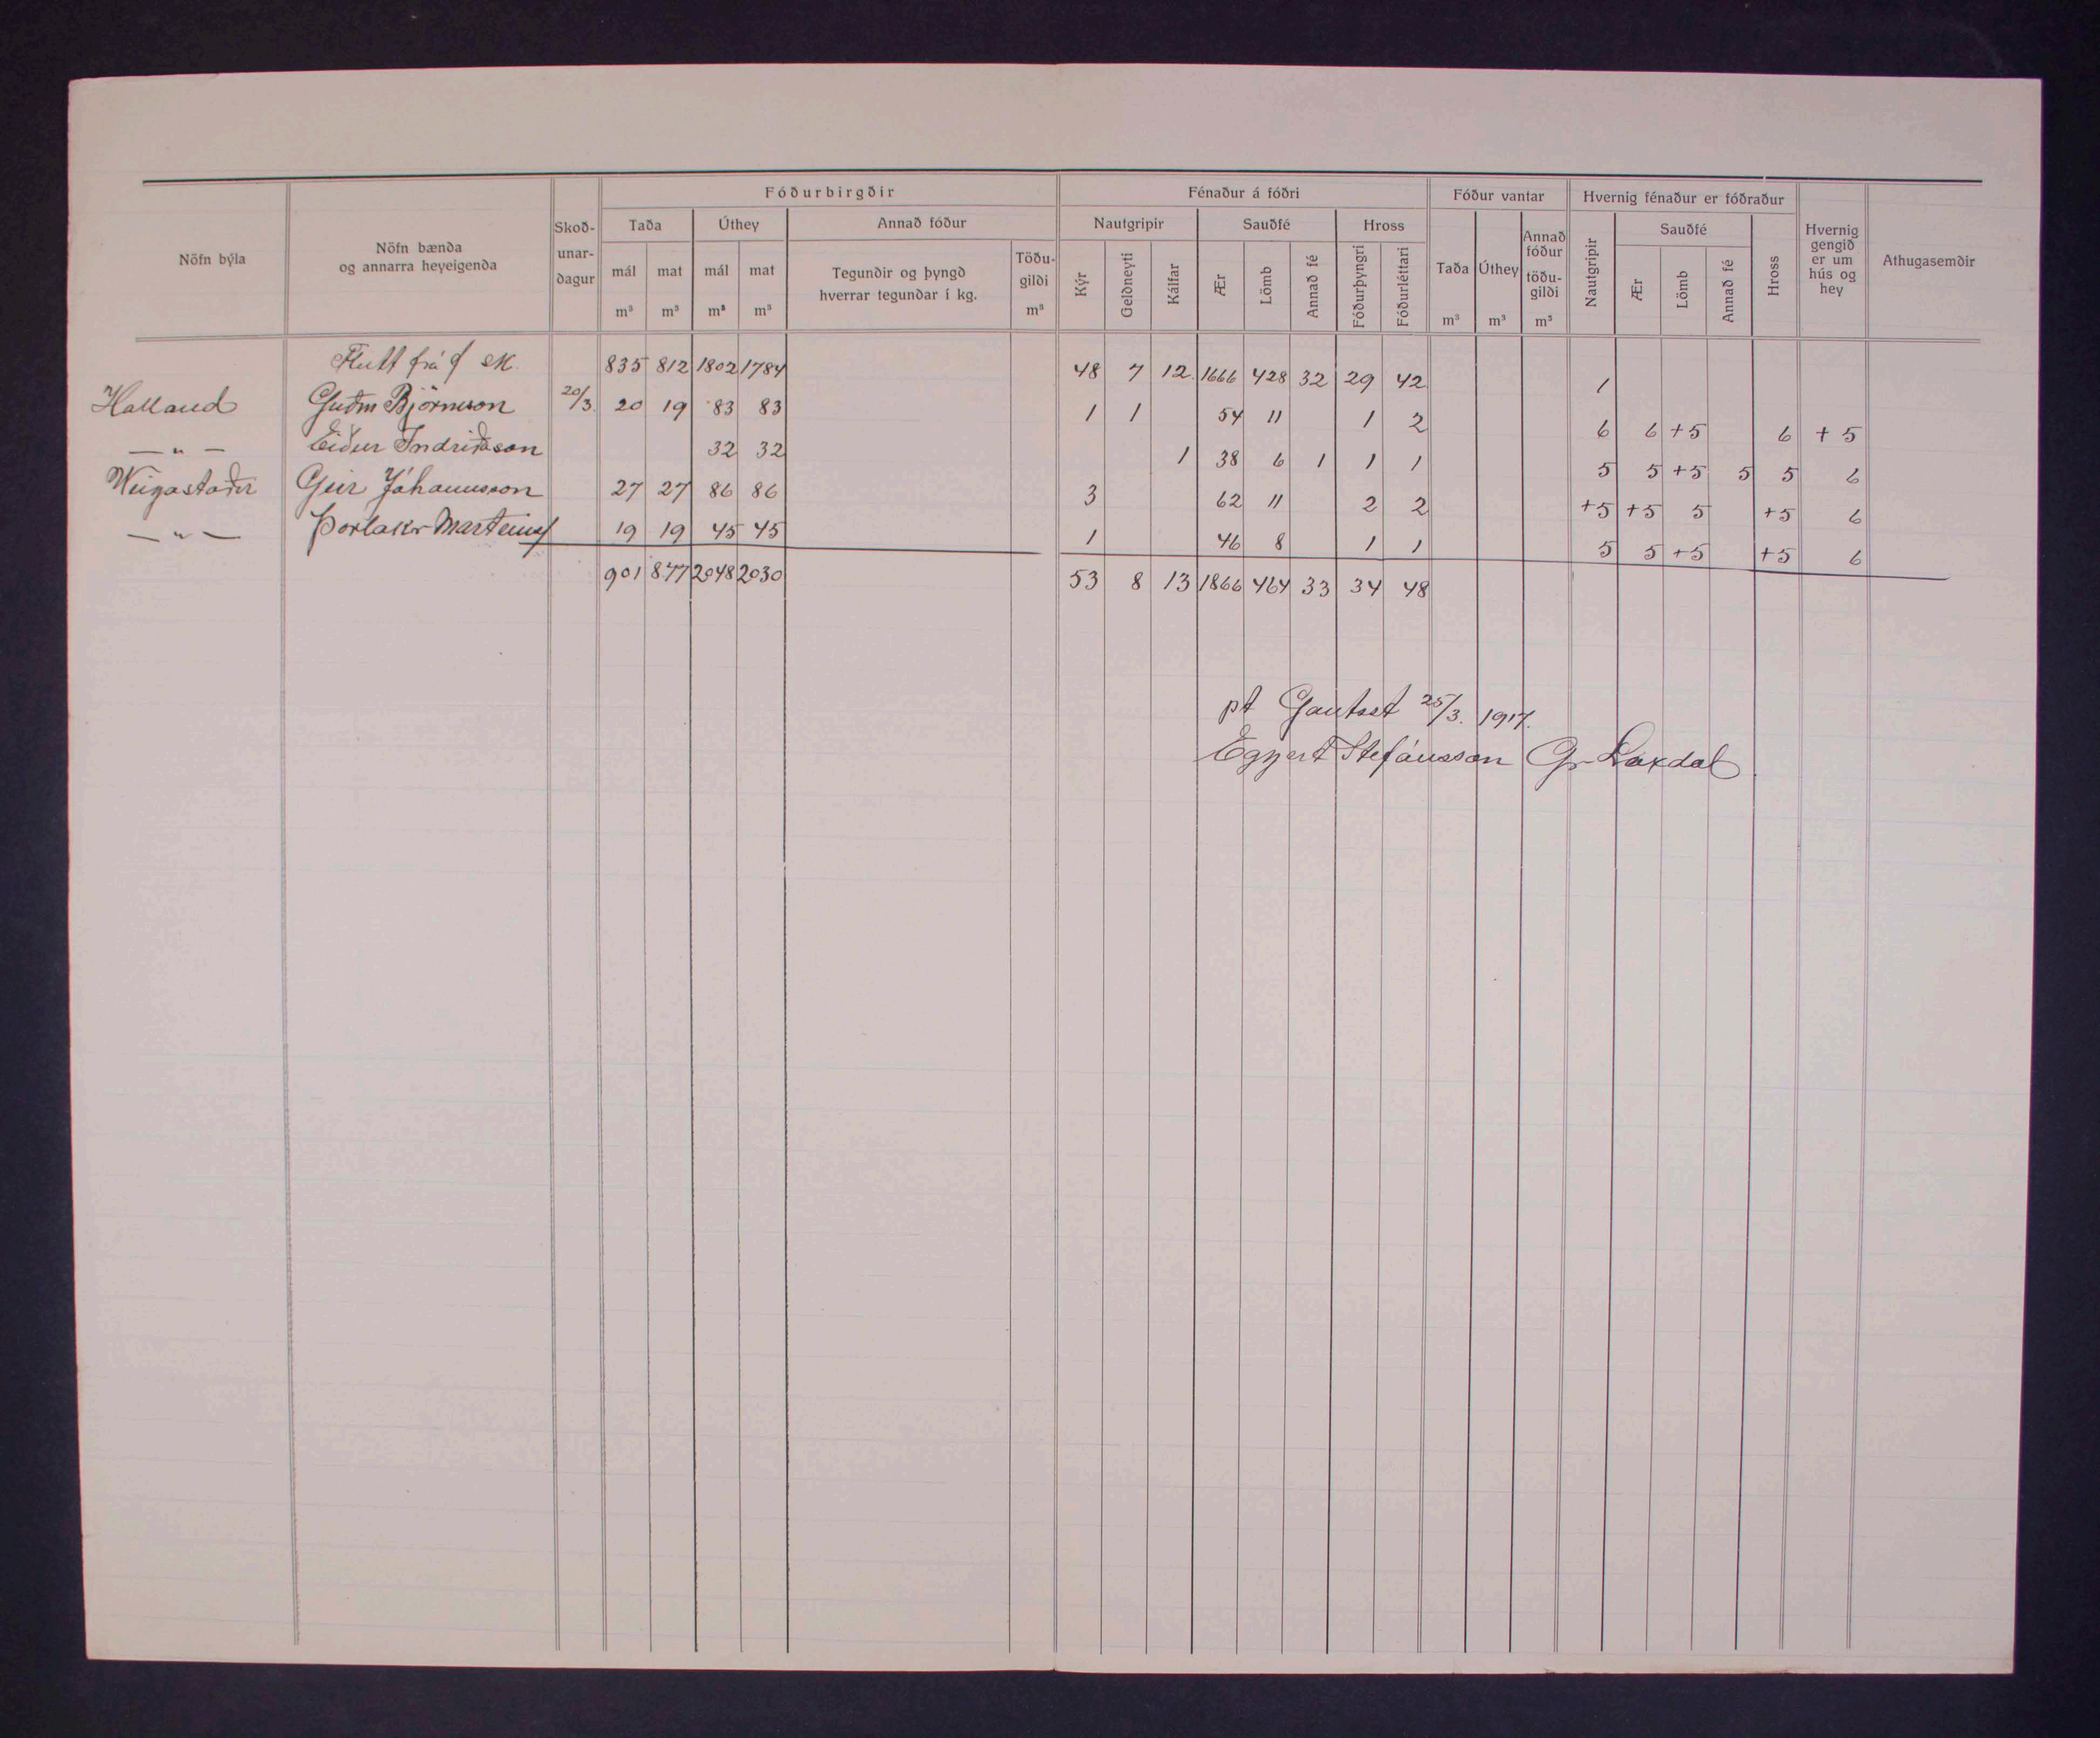 Fóðurbirgðir Fénaður á fóðri Fóður vantar Hvernig fénaður er fóðraður
Nöfn býla Nöfn bænda og annarra heyeigenda Skoð-unar-dagur Taða Úthey Annað fóður Nautgripir Sauðfé Hross Taða Úthey Annað fóður töðu-gildi Nautgripir Sauðfé Hross Hvernig gengið er um hús og hey Athugasemdir
mál mat mál mat Tegundir og þyngd hverrar tegundar í kg. Töðu-gildi Kýr Geldneyti Kálfar Ær Lömb Annað fé Fóðurþyngri Fóðurléttari Ær Lömb Annað fé
m³ m³ m³ m³ m³ m³ m³ m³
Flutt frá 835 812 1802 1784 48 7 12 1666 428 32 29 42 1
Halland Guðm Björnsson 20/3 20 19 83 83 1 1 54 11 1 2 6 6 +5 6 +5
— „ — Eiður Indriðason 32 32 1 38 6 1 1 1 5 5 +5 5 5 6
Veigastaðir Geir Jóhannsson 27 27 86 86 3 62 11 2 2 +5 +5 5 +5 6
— „ — Þorlakr Marteins 19 19 45 45 1 46 8 1 1 5 5 +5 +5 6
901 877 2048 2030 53 8 13 1866 464 33 34 48
pt Gautsst 25/3. 1917.
Eggert Stefánsson Gr Laxdal